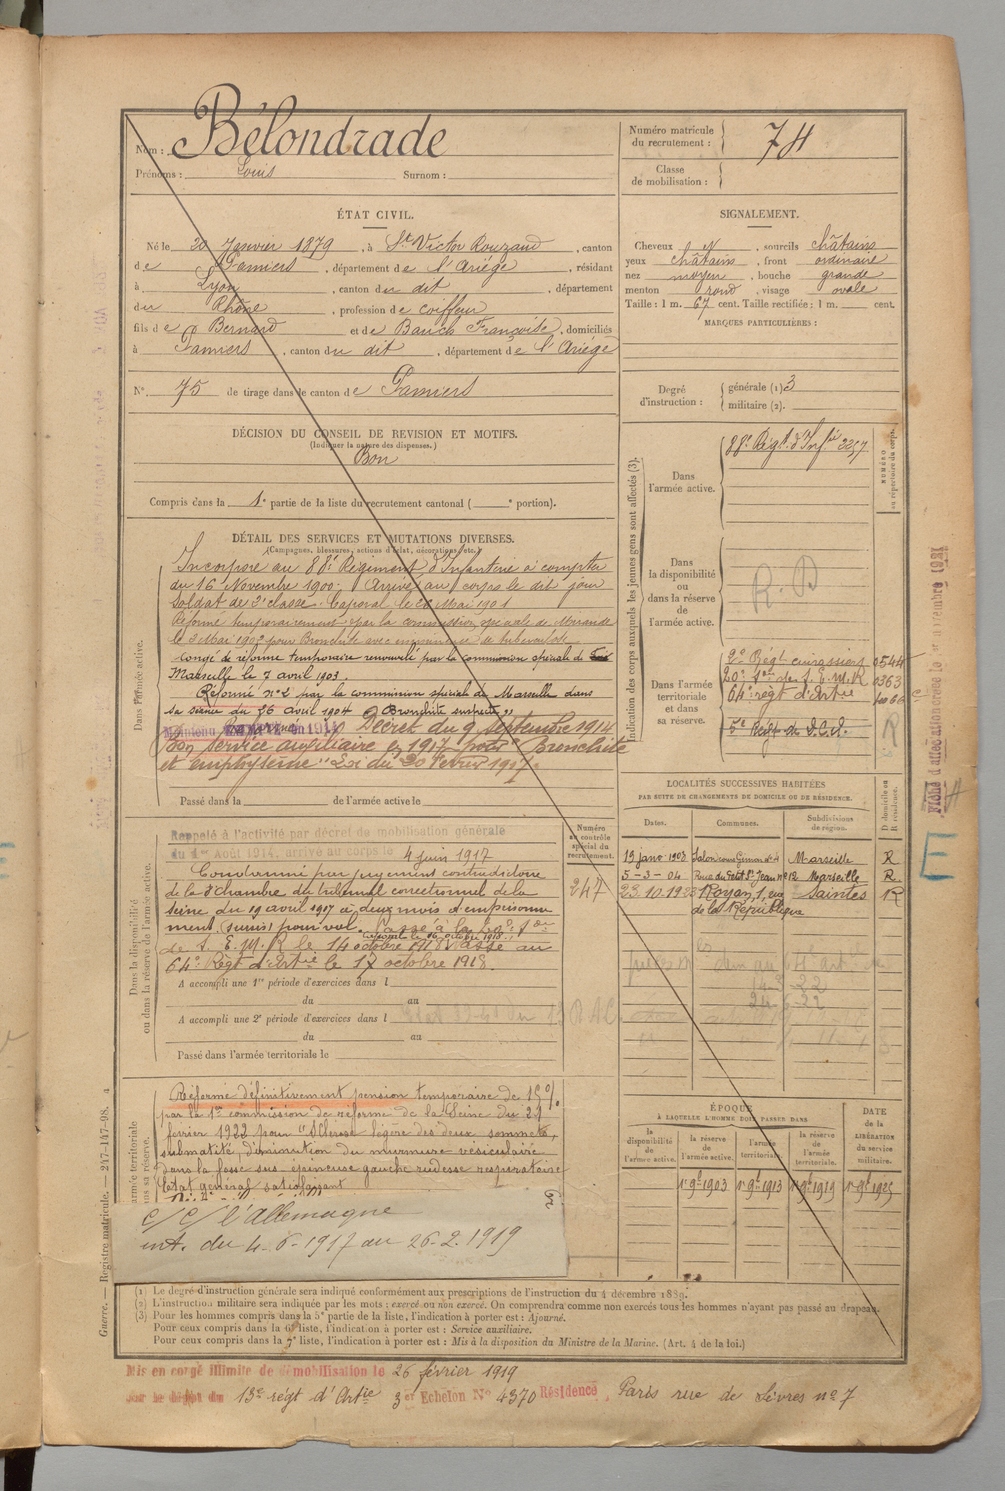 Nom : Bélondrade
Prénoms : Louis Surnom :
Numéro matricule du recrutement : 74
Classe de mobilisation :
ÉTAT CIVIL.
Né le 20 Janvier 1879, à St Victor Rouzaud, canton
de Pamiers, département de l'Ariége, résidant
à Lyon, canton du dit, département
du Rhône, profession de coiffeur
fils de Bernard et de Bauch Françoise, domiciliés
à Pamiers, canton du dit, département de l'Ariége
N° 75 de tirage dans le canton de Pamiers
SIGNALEMENT.
Cheveux ch N, sourcils châtains
yeux châtains, front ordinaire
nez moyen, bouche grande
menton rond, visage ovale
Taille : 1 m. 67 cent. Taille rectifiée : 1 m. cent.
MARQUES PARTICULIÈRES :
Degré d'instruction : générale (1) 3
militaire (2).
DÉCISION DU CONSEIL DE REVISION ET MOTIFS.
(Indiquer la nature des dispenses.)
Bon
Compris dans la 1e partie de la liste du recrutement cantonal ( e portion).
DÉTAIL DES SERVICES ET MUTATIONS DIVERSES.
(Campagnes, blessures, actions d'éclat, décorations, etc.)
Dans l'armée active.
Incorporé au 88e Régiment d'Infanterie à compter
du 16 Novembre 1900. Arrivé au corps le dit jour
Soldat de 2e classe. Caporal le Mai 1901
Réformé temporairement par la commission spéciale de
le 3 Mai 1902 pour Bronchite avec imminence de tuberculose
congé de réforme temporaire renouvelé par la commission spéciale de
Marseille le 7 avril 1903.
Réformé n° 2 par la commission spéciale de Marseille dans
sa séance du 26 avril 1904 Bronchite suspecte
Maintenu
Décret du 9 septembre 1914
Bon service auxiliaire en 1917 pour "Bronchite
et emphysème" Loi du 20 février 1917.
Passé dans la de l'armée active le
Indication des corps auxquels les jeunes gens sont affectés (3).
NUMÉRO au répertoire du corps.
Dans l'armée active. 88e Régt. d'Infie 2257
Dans la disponibilité ou dans la réserve de l'armée active. R. D
Dans l'armée territoriale et dans sa réserve.
2e Régt cuirassiers 0544
20e Son de S. E. M. R 0363
64e régt d'Artie
5e Régt de D.C.A.
R
Fiche d'affectation créée le
E
LOCALITÉS SUCCESSIVES HABITÉES
PAR SUITE DE CHANGEMENTS DE DOMICILE OU DE RÉSIDENCE.
Dates. Communes. Subdivisions de région. D domicile ou R résidence.
19 janv 1903 Marseille R
5-3-04 Rue du Petit St Jean n° 12 Marseille R
23.10.1923 Royan, 1, rue de la République Saintes R
Numéro au contrôle spécial du recrutement.
247
Dans la disponibilité ou dans la réserve de l'armée active.
Rappelé à l'activité par décret de mobilisation générale
du 1er Août 1914, arrivé au corps le 4 juin 1917
Condamné par jugement contradictoire
de la 8e Chambre du tribunal correctionnel de la
Seine du 19 avril 1917 à deux mois d'emprisonne
ment (sursis) pour vol. Passé à la 20e Son
de S. E. M. R le 14 octobre 1918 Passé au
64e Régt d'Artie le 17 octobre 1918.
A accompli une 1re période d'exercices dans l
du au
A accompli une 2e période d'exercices dans l
du au
Passé dans l'armée territoriale le
Réformé définitivement pension temporaire de 15%.
par la 1re commission de réforme de la Seine du 21
février 1922 pour "Sclérose légère des deux sommets,
submatité, diminution du murmure vésiculaire
dans la fosse sus-épineuse gauche rudesse respiratoire
Etat général satisfaisant
c/ c/ l'Allemagne
int. du 4-6-1917 au 26-2-1919
ÉPOQUE
À LAQUELLE L'HOMME DOIT PASSER DANS
la disponibilité de l'armée active.
la réserve de l'armée active.
l'armée territoriale.
la réserve de l'armée territoriale.
DATE de la LIBÉRATION du service militaire.
1er 9bre 1903 1er 9bre 1913 1er 9bre 1919 1er 9bre 1925
(1) Le degré d'instruction générale sera indiqué conformément aux prescriptions de l'instruction du 4 décembre 1889.
(2) L'instruction militaire sera indiquée par les mots : exercé ou non exercé. On comprendra comme non exercés tous les hommes n'ayant pas passé au drapeau.
(3) Pour les hommes compris dans la 5e partie de la liste, l'indication à porter est : Ajourné.
Pour ceux compris dans la 6e liste, l'indication à porter est : Service auxiliaire.
Pour ceux compris dans la 7e liste, l'indication à porter est : Mis à la disposition du Ministre de la Marine. (Art. 4 de la loi.)
Guerre. — Registre matricule. — 247-147-98.
Mis en congé illimité de démobilisation le 26 février 1919
sur le dépôt du 13e régt d'Artie 3er Echelon N° 4370 Résidence, Paris rue de Sèvres n° 7